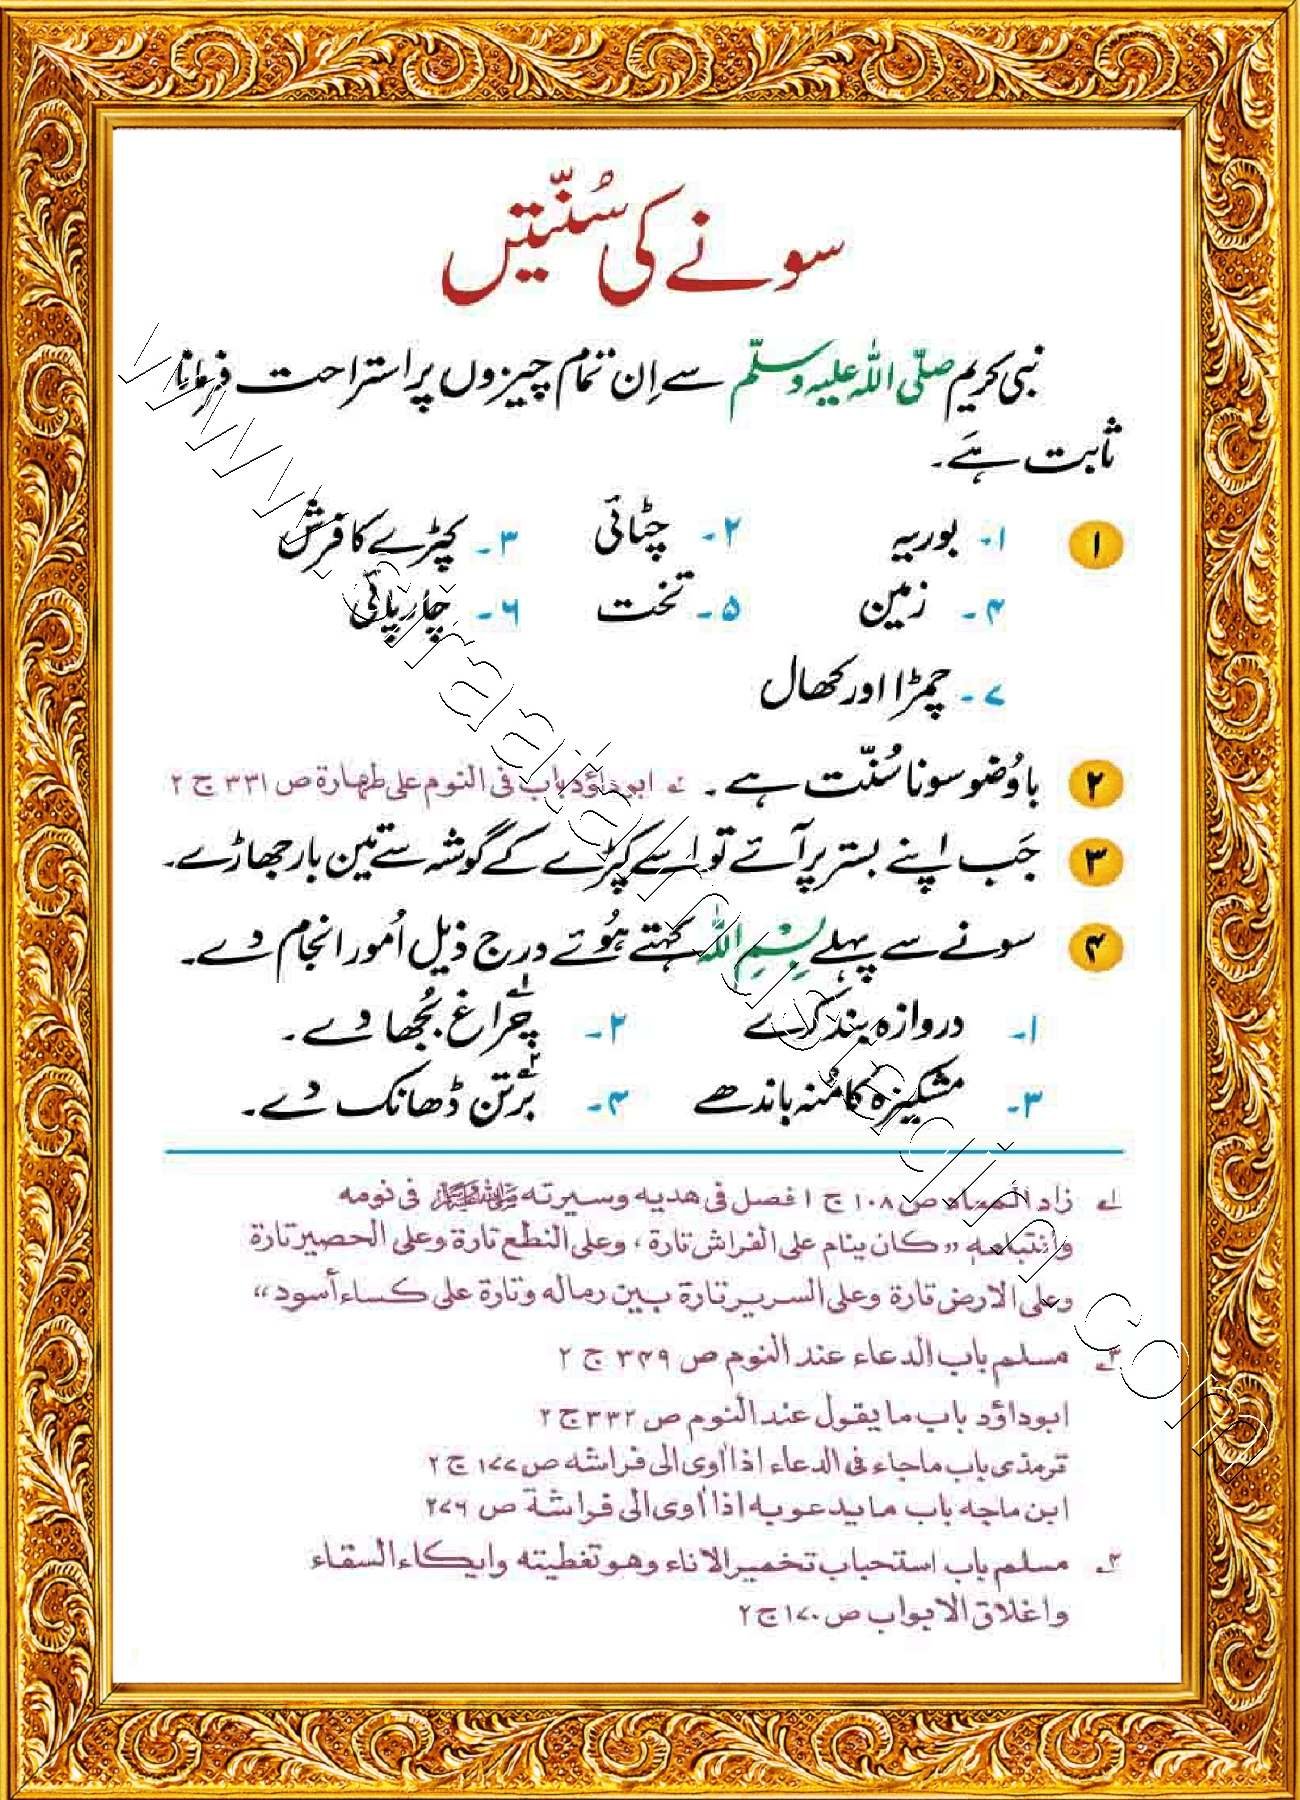 سونے کی سُنّتیں
نبی کریم صلّی اللہ علیہ وسلّم سے اِن تمام چیزوں پر استراحت فرمانا
ثابت ہے۔
۱ ۱۔ بوریہ ۲۔ چٹائی ۳۔ کپڑے کا فرش
۴۔ زمین ۵۔ تخت ۶۔ چارپائی
۷۔ چمڑا اور کھال
۲ باوُضو سونا سُنّت ہے۔ ابوداؤد باب فی النوم علی طہارة ص ۳۳۱ ج ۲
۳ جَب اپنے بستر پر آئے تو اسے کپڑے کے گوشہ سے تین بار جھاڑے۔
۴ سونے سے پہلے بِسْمِ اللہ کہتے ہُوئے درج ذیل اُمور انجام دے۔
۱۔ دروازہ بند کرے ۲۔ چراغ بُجھا دے۔
۳۔ مشکیزہ کا مُنہ باندھے ۴۔ برتن ڈھانک دے۔
۱ زاد المعاد ص ۱۰۸ ج ۱ فصل فی هدیه وسیرته ﷺ فی نومه
وانتباهه "کان ینام علی الفراش تارة، وعلی النطع تارة وعلی الحصیر تارة
وعلی الارض تارة وعلی السریر تارة بین رماله وتارة علی کساء أسود"
مسلم باب الدعاء عند النوم ص ۳۴۹ ج ۲
ابوداؤد باب مایقول عند النوم ص ۳۳۲ ج ۲
ترمذی باب ماجاء فی الدعاء اذا اوی الی فراشه ص ۱۷۷ ج ۲
ابن ماجه باب مایدعوبه اذا اوی الی فراشة ص ۲۷۶
مسلم باب استحباب تخمیر الاناء وهو تغطیته وایکاء السقاء
واغلاق الابواب ص ۱۷۰ ج ۲